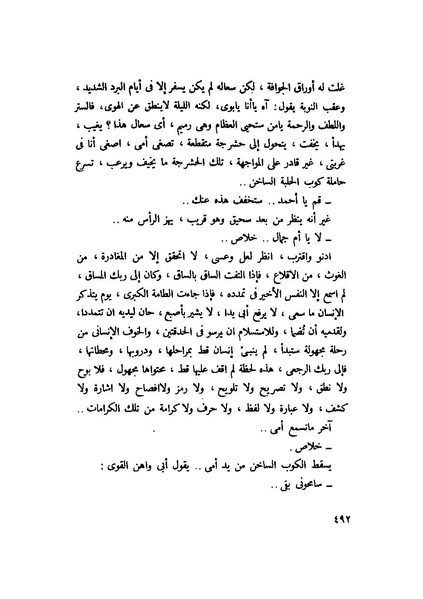 غلت له أوراق الجوافة ، لكن سعاله لم يكن يسفر إلا فى أيام البرد الشديد ،
وعقب النوبة يقول : آه ياأنا يابوى، لكنه الليلة لاينطق عن الهوى، فالستر
واللطف والرحمة يامن ستحيى العظام وهى رميم ، أى سعال هذا ؟ يغيب ،
يهدأ ، يخفت ، يتحول إلى حشرجة متقطعة ، تصغى أمى ، اصغى أنا فى
غربتى ، غير قادر على المواجهة ، تلك الحشرجة ما يخيف ويرعب ، تسرع
حاملة كوب الحلبة الساخن ..
ــ قم يا أحمد .. ستخفف هذه عنك ..
غير أنه ينظر من بعد سحيق وهو قريب ، يهز الرأس منه ..
ــ لا يا أم جمال .. خلاص ..
ادنو واقترب ، انظر لعلى وعسى ، لا اتحقق إلا من المغادرة ، من
الغوث ، من الاقلاع ، فإذا التفت الساق بالساق ، وكان إلى ربك المساق ،
لم اسمع إلا النفس الأخير فى تمدده ، فإذا جاءت الطامة الكبرى ، يوم يتذكر
الإنسان ما سعى ، لا يرفع أبى يدا ، لا يشير بأصبع ، حان ليديه ان تتمددا،
ولقدميه أن تُضما ، وللاستسلام ان يرسو فى الحدقتين ، والخوف الإنسانى من
رحلة مجهولة ستبدأ ، لم ينبىء إنسان قط بمراحلها ، ودروبها ، ومحطاتها ،
فإلى ربك الرجعى ، هذه لحظة لم اقف عليها قط ، محتواها مجهول ، فلا بوح
ولا نطق ، ولا تصريح ولا تلويح ، ولا رمز ولاافصاح ولا اشارة ولا
كشف ، ولا عبارة ولا لفظ ، ولا حرف ولا كرامة من تلك الكرامات ..
آخر ماتسمع أمى ..
ــ خلاص .
يسقط الكوب الساخن من يد أمى .. يقول أبى واهن القوى :
ــ سامحونى بقى ..
٤٩٢